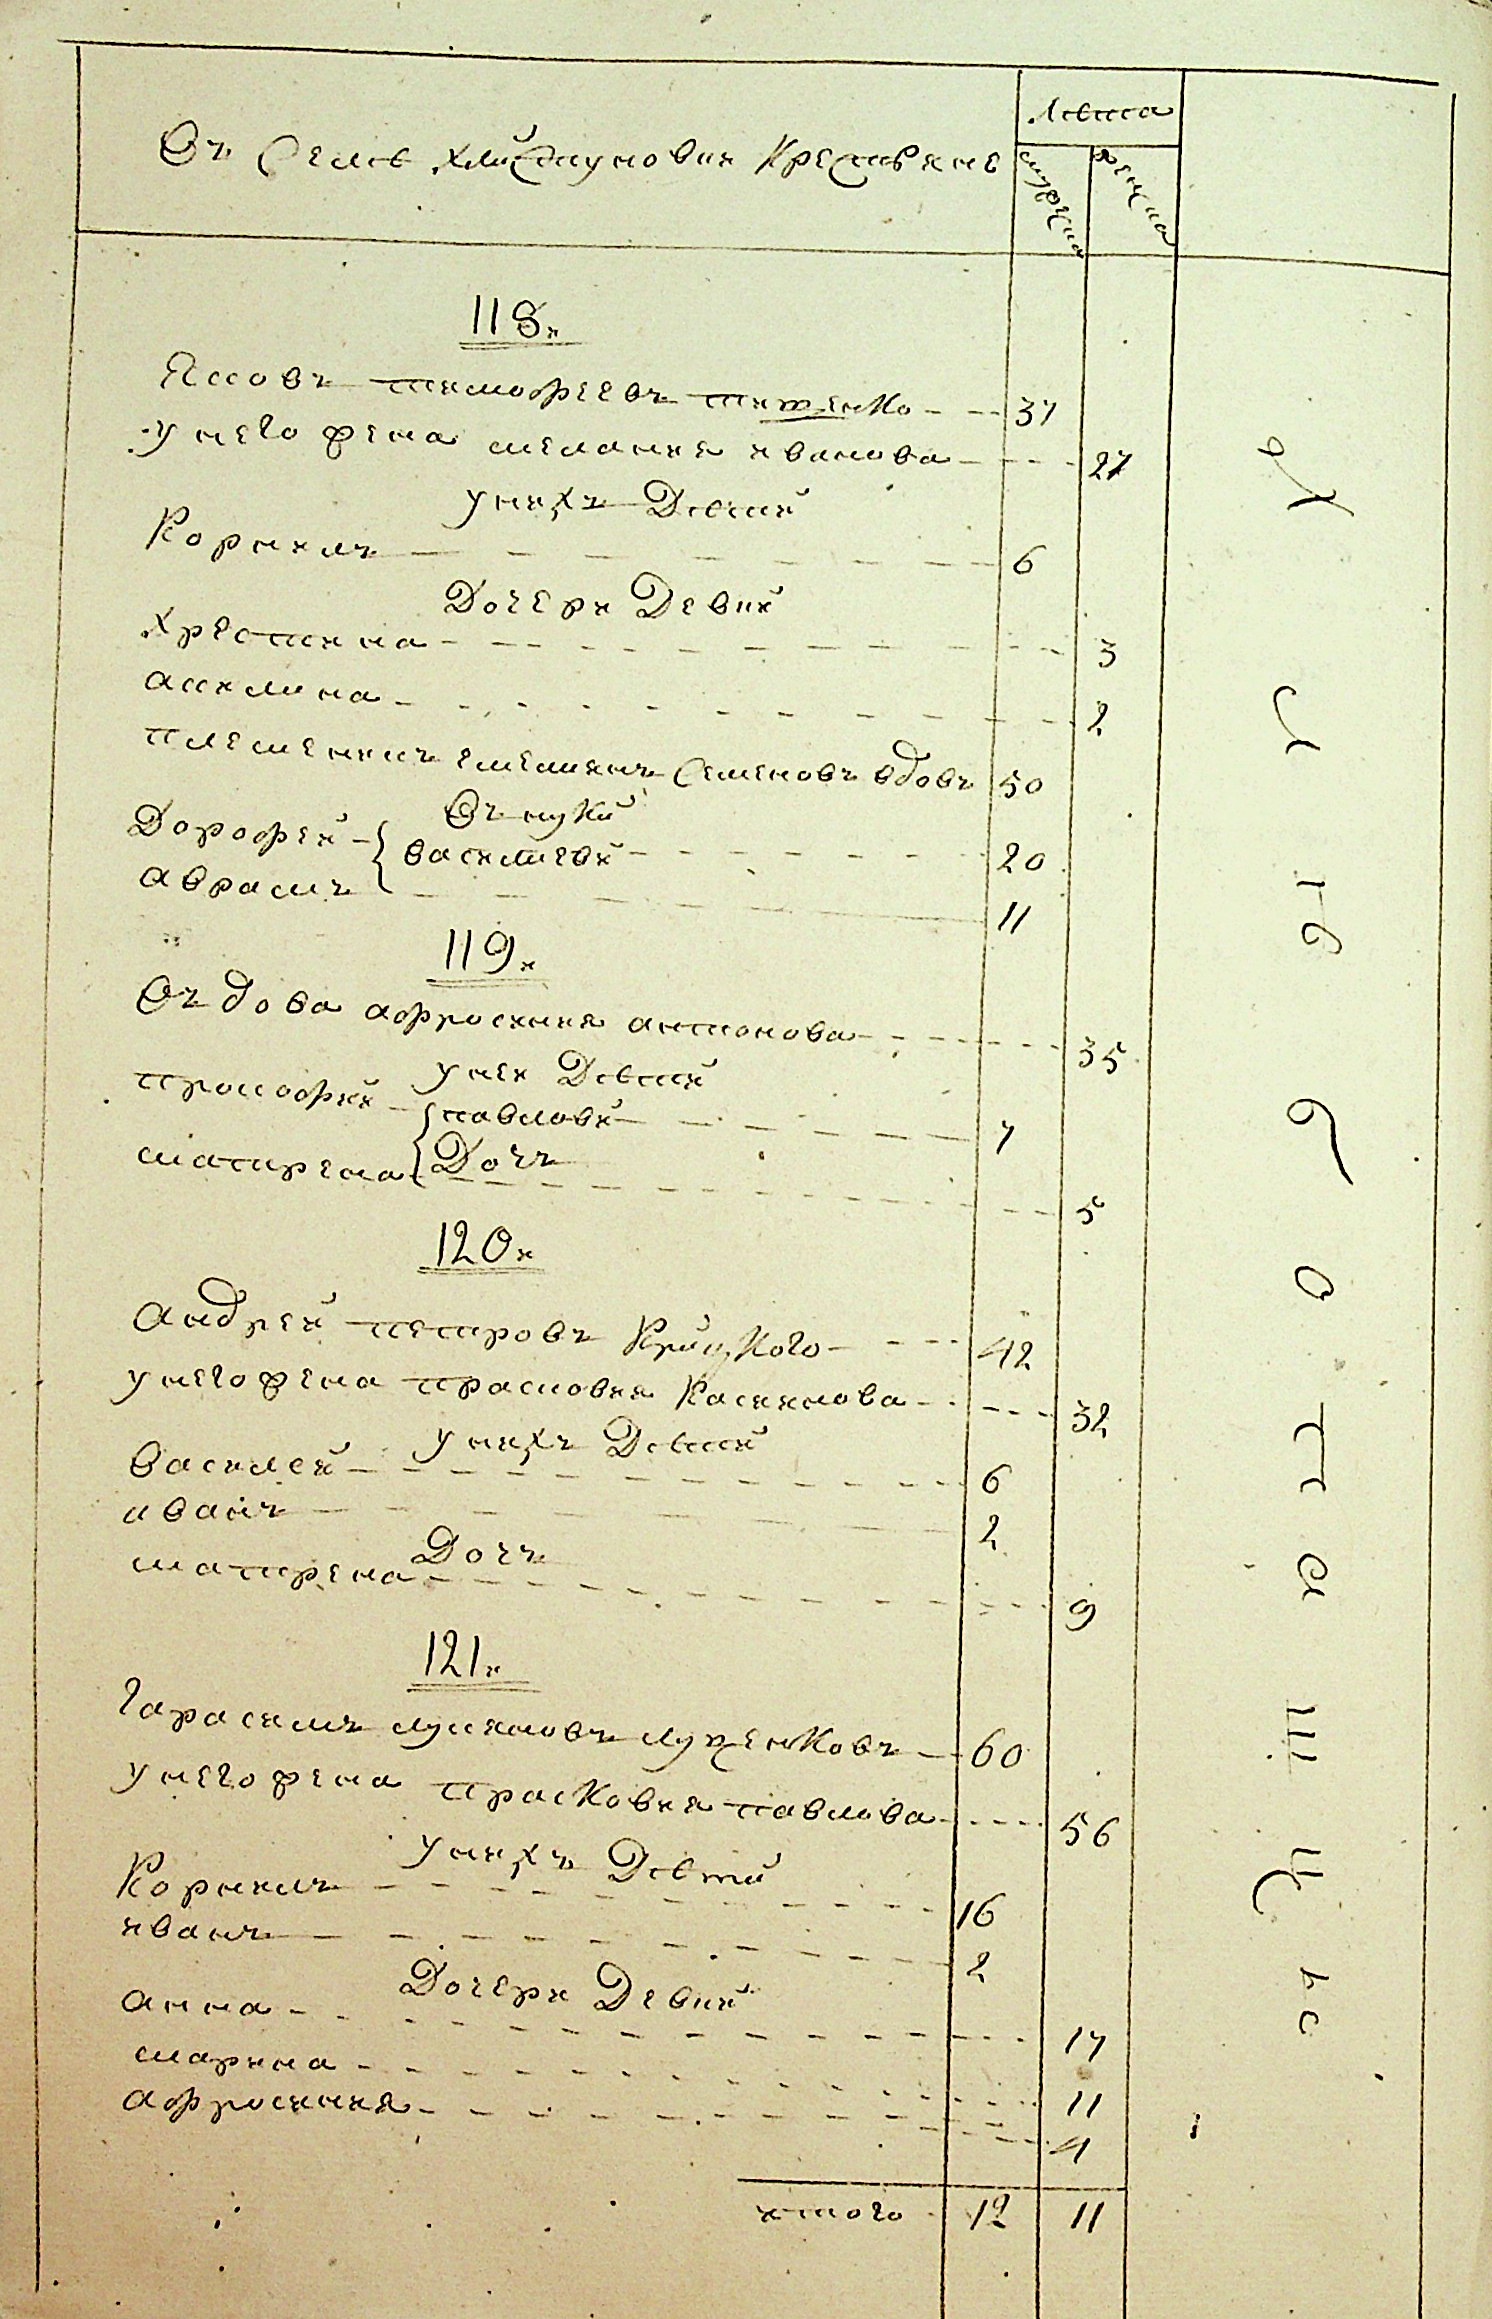 Въ Селѣ Хлистуновки Крестьяне
Лѣта
мужска
женска
118й
Яковъ тимофеевъ тищенко 37
у него жена мелания иванова 27
у нихъ Дѣтий
Корнилъ 6
Дочери Девки
Христина 3
акилина 2
племеникъ емелианъ Семеновъ вдовъ 50
Внуки
Дорофей Василиеви 20
аврамъ 11
119й
Вдова афросиния антонова 35
у ней Дѣтий
прокофий павлови 7
Дочъ
матрена 5
120й
андрей петровъ Крицкого 42
у него жена прасковия Касиянова 32
у нихъ Дѣтий
василей 6
иванъ 2
Дочъ
матрена 9
121й
Гарасимъ лукяновъ луценковъ 60
у него жена прасковия павлова 56
у нихъ Дѣтий
Корнилъ 16
иванъ 2
Дочери Девки
анна 17
марина 11
афросиния 4
итого 12 11